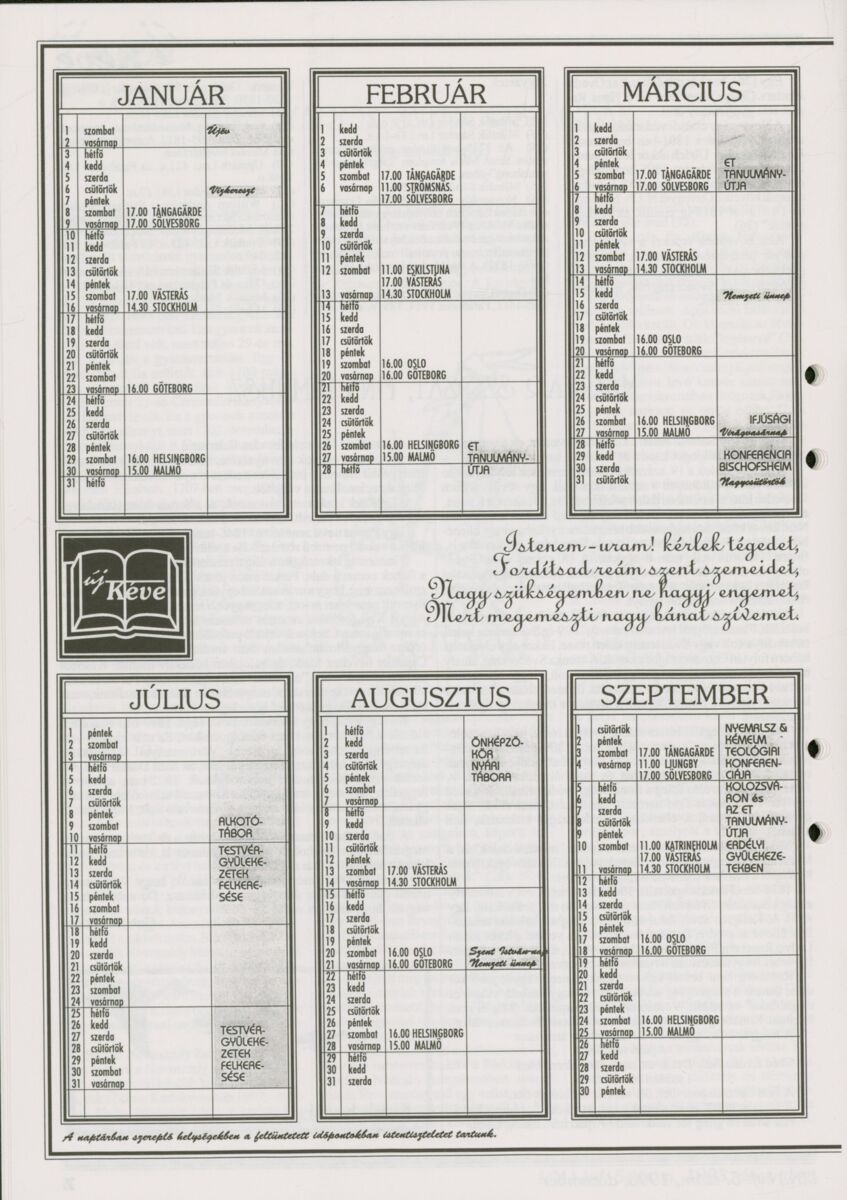 JANUÁR
1 szombat Újév
2 vasárnap
3 hétfő
4 kedd
5 szerda
6 csütörtök Vízkereszt
7 péntek
8 szombat 17.00 TÅNGAGÄRDE
9 vasárnap 17.00 SÖLVESBORG
10 hétfő
11 kedd
12 szerda
13 csütörtök
14 péntek
15 szombat 17.00 VÄSTERÅS
16 vasárnap 14.30 STOCKHOLM
17 hétfő
18 kedd
19 szerda
20 csütörtök
21 péntek
22 szombat
23 vasárnap 16.00 GÖTEBORG
24 hétfő
25 kedd
26 szerda
27 csütörtök
28 péntek
29 szombat 16.00 HELSINGBORG
30 vasárnap 15.00 MALMÖ
31 hétfő
FEBRUÁR
1 kedd
2 szerda
3 csütörtök
4 péntek
5 szombat 17.00 TÅNGAGÄRDE
6 vasárnap 11.00 STRÖMSNÄS.
17.00 SÖLVESBORG
7 hétfő
8 kedd
9 szerda
10 csütörtök
11 péntek
12 szombat 11.00 ESKILSTUNA
17.00 VÄSTERÅS
13 vasárnap 14.30 STOCKHOLM
14 hétfő
15 kedd
16 szerda
17 csütörtök
18 péntek
19 szombat 16.00 OSLO
20 vasárnap 16.00 GÖTEBORG
21 hétfő
22 kedd
23 szerda
24 csütörtök
25 péntek
26 szombat 16.00 HELSINGBORG ET
27 vasárnap 15.00 MALMÖ TANULMÁNY-
28 hétfő ÚTJA
MÁRCIUS
1 kedd
2 szerda
3 csütörtök
4 péntek ET
5 szombat 17.00 TÅNGAGÄRDE TANULMÁNY-
6 vasárnap 17.00 SÖLVESBORG ÚTJA
7 hétfő
8 kedd
9 szerda
10 csütörtök
11 péntek
12 szombat 17.00 VÄSTERÅS
13 vasárnap 14.30 STOCKHOLM
14 hétfő
15 kedd Nemzeti ünnep
16 szerda
17 csütörtök
18 péntek
19 szombat 16.00 OSLO
20 vasárnap 16.00 GÖTEBORG
21 hétfő
22 kedd
23 szerda
24 csütörtök
25 péntek
26 szombat 16.00 HELSINGBORG IFJÚSÁGI
27 vasárnap 15.00 MALMÖ Virágvasárnap
28 hétfő
29 kedd KONFERENCIA
30 szerda BISCHOFSHEIM
31 csütörtök Nagycsütörtök
új Kéve
Istenem-uram! kérlek tégedet,
Fordítsad reám szent szemeidet,
Nagy szükségemben ne hagyj engemet,
Mert megemészti nagy bánat szívemet.
JÚLIUS
1 péntek
2 szombat
3 vasárnap
4 hétfő
5 kedd
6 szerda
7 csütörtök
8 péntek
9 szombat ALKOTÓ-
10 vasárnap TÁBOR
11 hétfő TESTVÉR-
12 kedd GYÜLEKE-
13 szerda ZETEK
14 csütörtök FELKERE-
15 péntek SÉSE
16 szombat
17 vasárnap
18 hétfő
19 kedd
20 szerda
21 csütörtök
22 péntek
23 szombat
24 vasárnap
25 hétfő
26 kedd TESTVÉR-
27 szerda GYÜLEKE-
28 csütörtök ZETEK
29 péntek FELKERE-
30 szombat SÉSE
31 vasárnap
AUGUSZTUS
1 hétfő
2 kedd ÖNKÉPZŐ-
3 szerda KÖR
4 csütörtök NYÁRI
5 péntek TÁBORA
6 szombat
7 vasárnap
8 hétfő
9 kedd
10 szerda
11 csütörtök
12 péntek
13 szombat 17.00 VÄSTERÅS
14 vasárnap 14.30 STOCKHOLM
15 hétfő
16 kedd
17 szerda
18 csütörtök
19 péntek
20 szombat 16.00 OSLO Szent István-nap
21 vasárnap 16.00 GÖTEBORG Nemzeti ünnep
22 hétfő
23 kedd
24 szerda
25 csütörtök
26 péntek
27 szombat 16.00 HELSINGBORG
28 vasárnap 15.00 MALMÖ
29 hétfő
30 kedd
31 szerda
SZEPTEMBER
1 csütörtök NYEMALSZ &
2 péntek KÉMELM
3 szombat 17.00 TÅNGAGÄRDE TEOLÓGIAI
4 vasárnap 11.00 LJUNGBY KONFEREN-
17.00 SÖLVESBORG CIÁJA
5 hétfő KOLOZSVÁ-
6 kedd RON és
7 szerda AZ ET
8 csütörtök TANULMÁNY-
9 péntek ÚTJA
10 szombat 11.00 KATRINEHOLM ERDÉLYI
17.00 VÄSTERÅS GYÜLEKEZE-
11 vasárnap 14.30 STOCKHOLM TEKBEN
12 hétfő
13 kedd
14 szerda
15 csütörtök
16 péntek
17 szombat 16.00 OSLO
18 vasárnap 16.00 GÖTEBORG
19 hétfő
20 kedd
21 szerda
22 csütörtök
23 péntek
24 szombat 16.00 HELSINGBORG
25 vasárnap 15.00 MALMÖ
26 hétfő
27 kedd
28 szerda
29 csütörtök
30 péntek
A naptárban szereplő helységekben a feltüntetett időpontokban istentiszteletet tartunk.